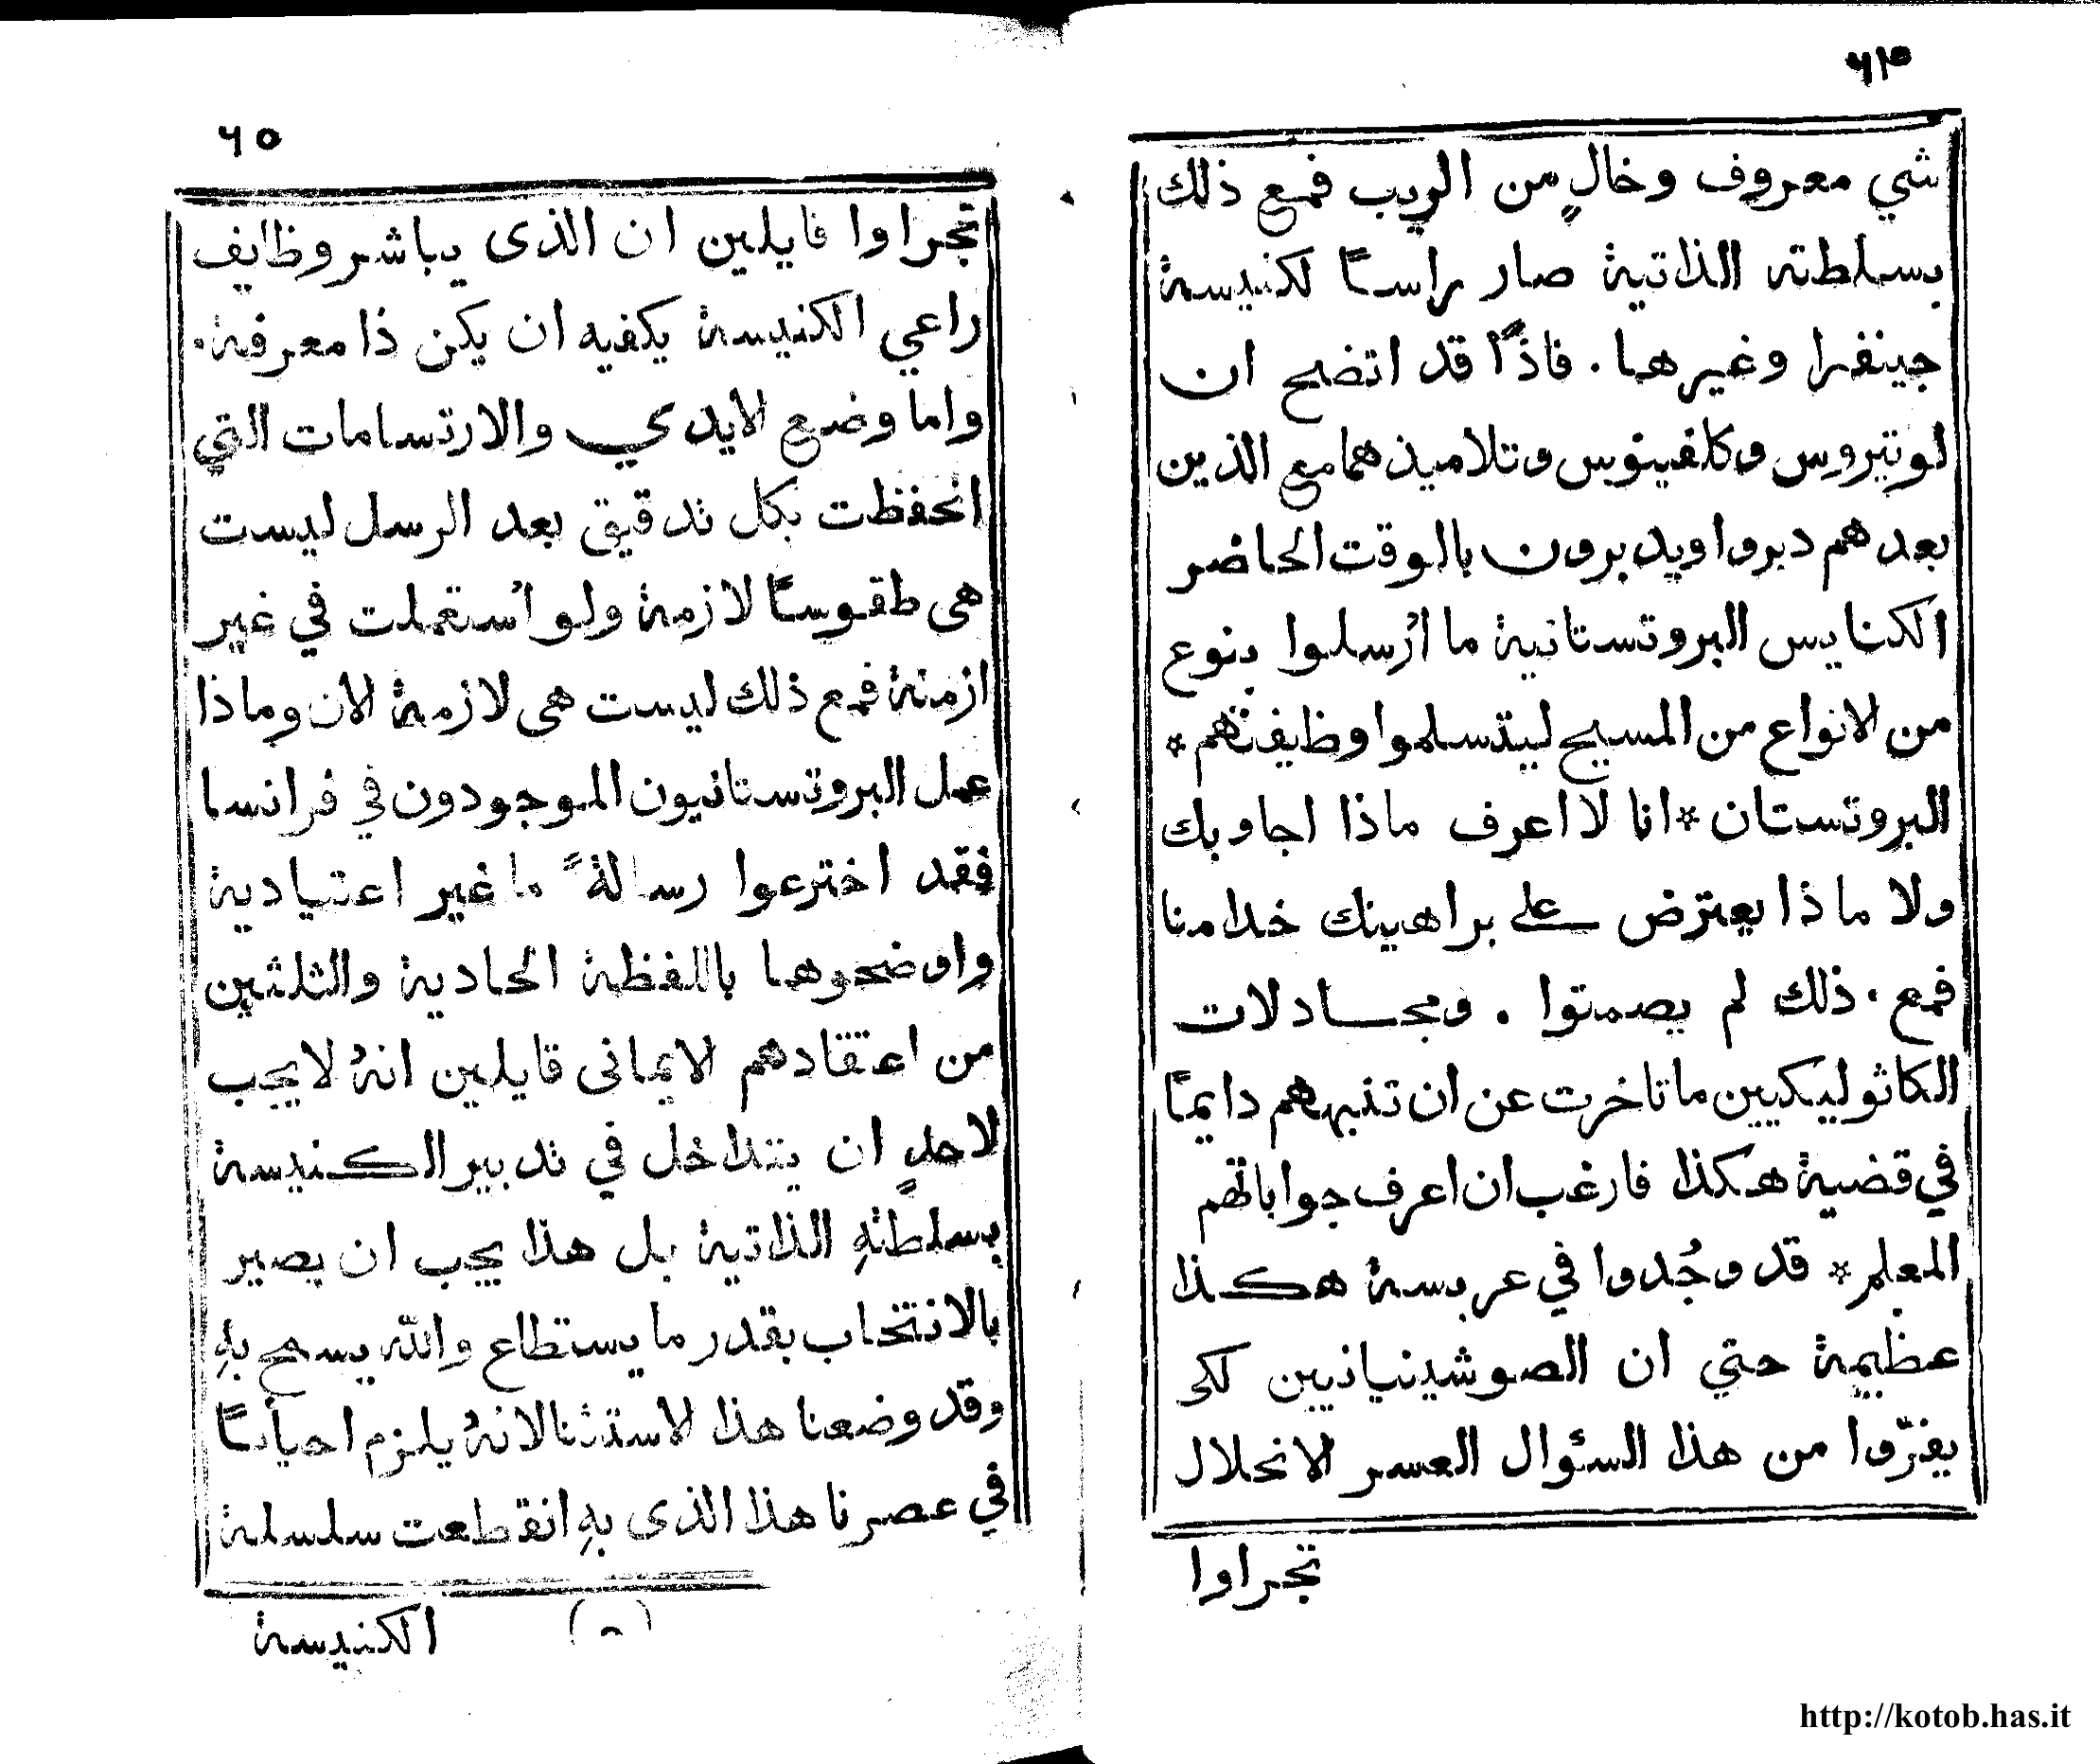 شي معروف وخالٍ من الريب فمع ذلك
بسلطته الذاتية صار راسًا لكنيسة
جينفرا وغيرها . فاذًا قد اتضح ان
لوتيروس وكلفينوس وتلاميذهما مع الذين
بعدهم دبروا ويدبرون بالوقت الحاضر
الكنايس البروتستانية ما اُرسلوا بنوع
من الانواع من المسيح ليتسلموا وظيفتهم *
البروتستان * انا لا اعرف ماذا اجاوبك
ولا ماذا يعترض على براهينك خدامنا
فمع . ذلك لم يصمتوا . ومجادلات
الكاثوليكيين ما تاخرت عن ان تنبههم دايمًا
في قضية هكذا فارغب ان اعرف جواباتهم
المعلم * قد وجُدوا في عربسة هكذا
عظيمة حتي ان الصوشينيانيين لكى
يفرّوا من هذا السؤال العسر الانحلال
تجراوا
٦٥
تجراوا قايلين ان الذى يباشر وظايف
راعي الكنيسة يكفيه ان يكن ذا معرفة .
واما وضع الايدي والارتسامات التي
انحفظت بكل تدقيق بعد الرسل ليست
هى طقوسًا لازمة ولو اُستعملت في غير
ازمنة فمع ذلك ليست هى لازمة الان وماذا
عمل البروتستانيون الموجودون في فرانسا
فقد اخترعوا رسالةً ما غير اعتيادية
واوضحوها باللفظة الحادية والثلثين
من اعتقادهم الايمانى قايلين انهُ لا يجب
لاحدٍ ان يتداخل في تدبير الكنيسة
بسلطتهِ الذاتية بل هذا يجب ان يصير
بالانتخاب بقدر ما يستطاع والله يسمح بهِ
وقد وضعنا هذا الاستثنا لانهُ يلزم احيانًا
في عصرنا هذا الذى بهِ انقطعت سلسلة
الكنيسة
http://kotob.has.it